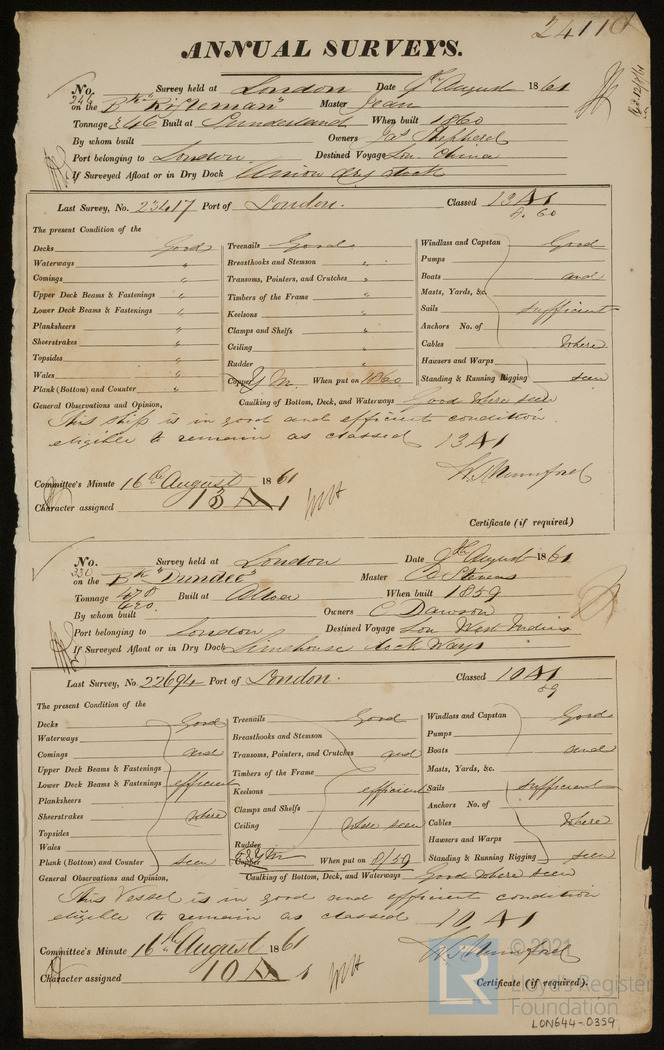 24110
ANNUAL SURVEYS.
No. 246 Survey held at London Date 9th August 1861
on the Bk "Rifleman" Master Jean
Tonnage 346 Built at Sunderland When built 1860
By whom built Owners Jas Shepherd
Port belonging to London Destined Voyage Lon. China
If Surveyed Afloat or in Dry Dock Union dry dock
Last Survey, No. 23417 Port of London. Classed 13 A 1
8. 60
The present Condition of the
Decks Good Treenails Good Windlass and Capstan Good
Waterways " Breasthooks and Stemson " Pumps
Comings " Transoms, Pointers, and Crutches " Boats and
Upper Deck Beams & Fastenings " Timbers of the Frame " Masts, Yards, &c.
Lower Deck Beams & Fastenings " Keelsons " Sails sufficient
Planksheers " Clamps and Shelfs " Anchors No. of
Sheerstrakes " Ceiling " Cables Where
Topsides " Rudder " Hawsers and Warps
Wales " Copper Y M. When put on 1860 Standing & Running Rigging seen
Plank (Bottom) and Counter " Caulking of Bottom, Deck, and Waterways Good where seen
General Observations and Opinion,
This ship is in good and efficient condition
eligible to remain as classed 13 A 1
W. T. Mumford
Committee's Minute 16th August 1861
Character assigned 13 A 1
Certificate (if required)
No. 330 Survey held at London Date 9th August 1861
on the Bk "Dundee" Master D Stevens
Tonnage 478 / 620 Built at Alloa When built 1859
By whom built Owners C Dawson
Port belonging to London Destined Voyage Lon West Indies
If Surveyed Afloat or in Dry Dock Limehouse dock Ways
Last Survey, No. 22694 Port of London. Classed 10 A 1
59
The present Condition of the
Decks Good Treenails Good Windlass and Capstan Good
Waterways Breasthooks and Stemson Pumps
Comings and Transoms, Pointers, and Crutches and Boats and
Upper Deck Beams & Fastenings Timbers of the Frame Masts, Yards, &c.
Lower Deck Beams & Fastenings efficient Keelsons efficient Sails sufficient
Planksheers Clamps and Shelfs Anchors No. of
Sheerstrakes where Ceiling where seen Cables Where
Topsides Rudder Hawsers and Warps
Wales Copper When put on 8/59 Standing & Running Rigging seen
Plank (Bottom) and Counter seen Caulking of Bottom, Deck, and Waterways Good where seen
General Observations and Opinion,
This Vessel is in good and efficient condition
eligible to remain as classed 10 A 1
W. T. Mumford
Committee's Minute 16th August 1861
Character assigned 10 A 1
Certificate (if required).
© 2021
LR Lloyd's Register
Foundation
LON644-0359